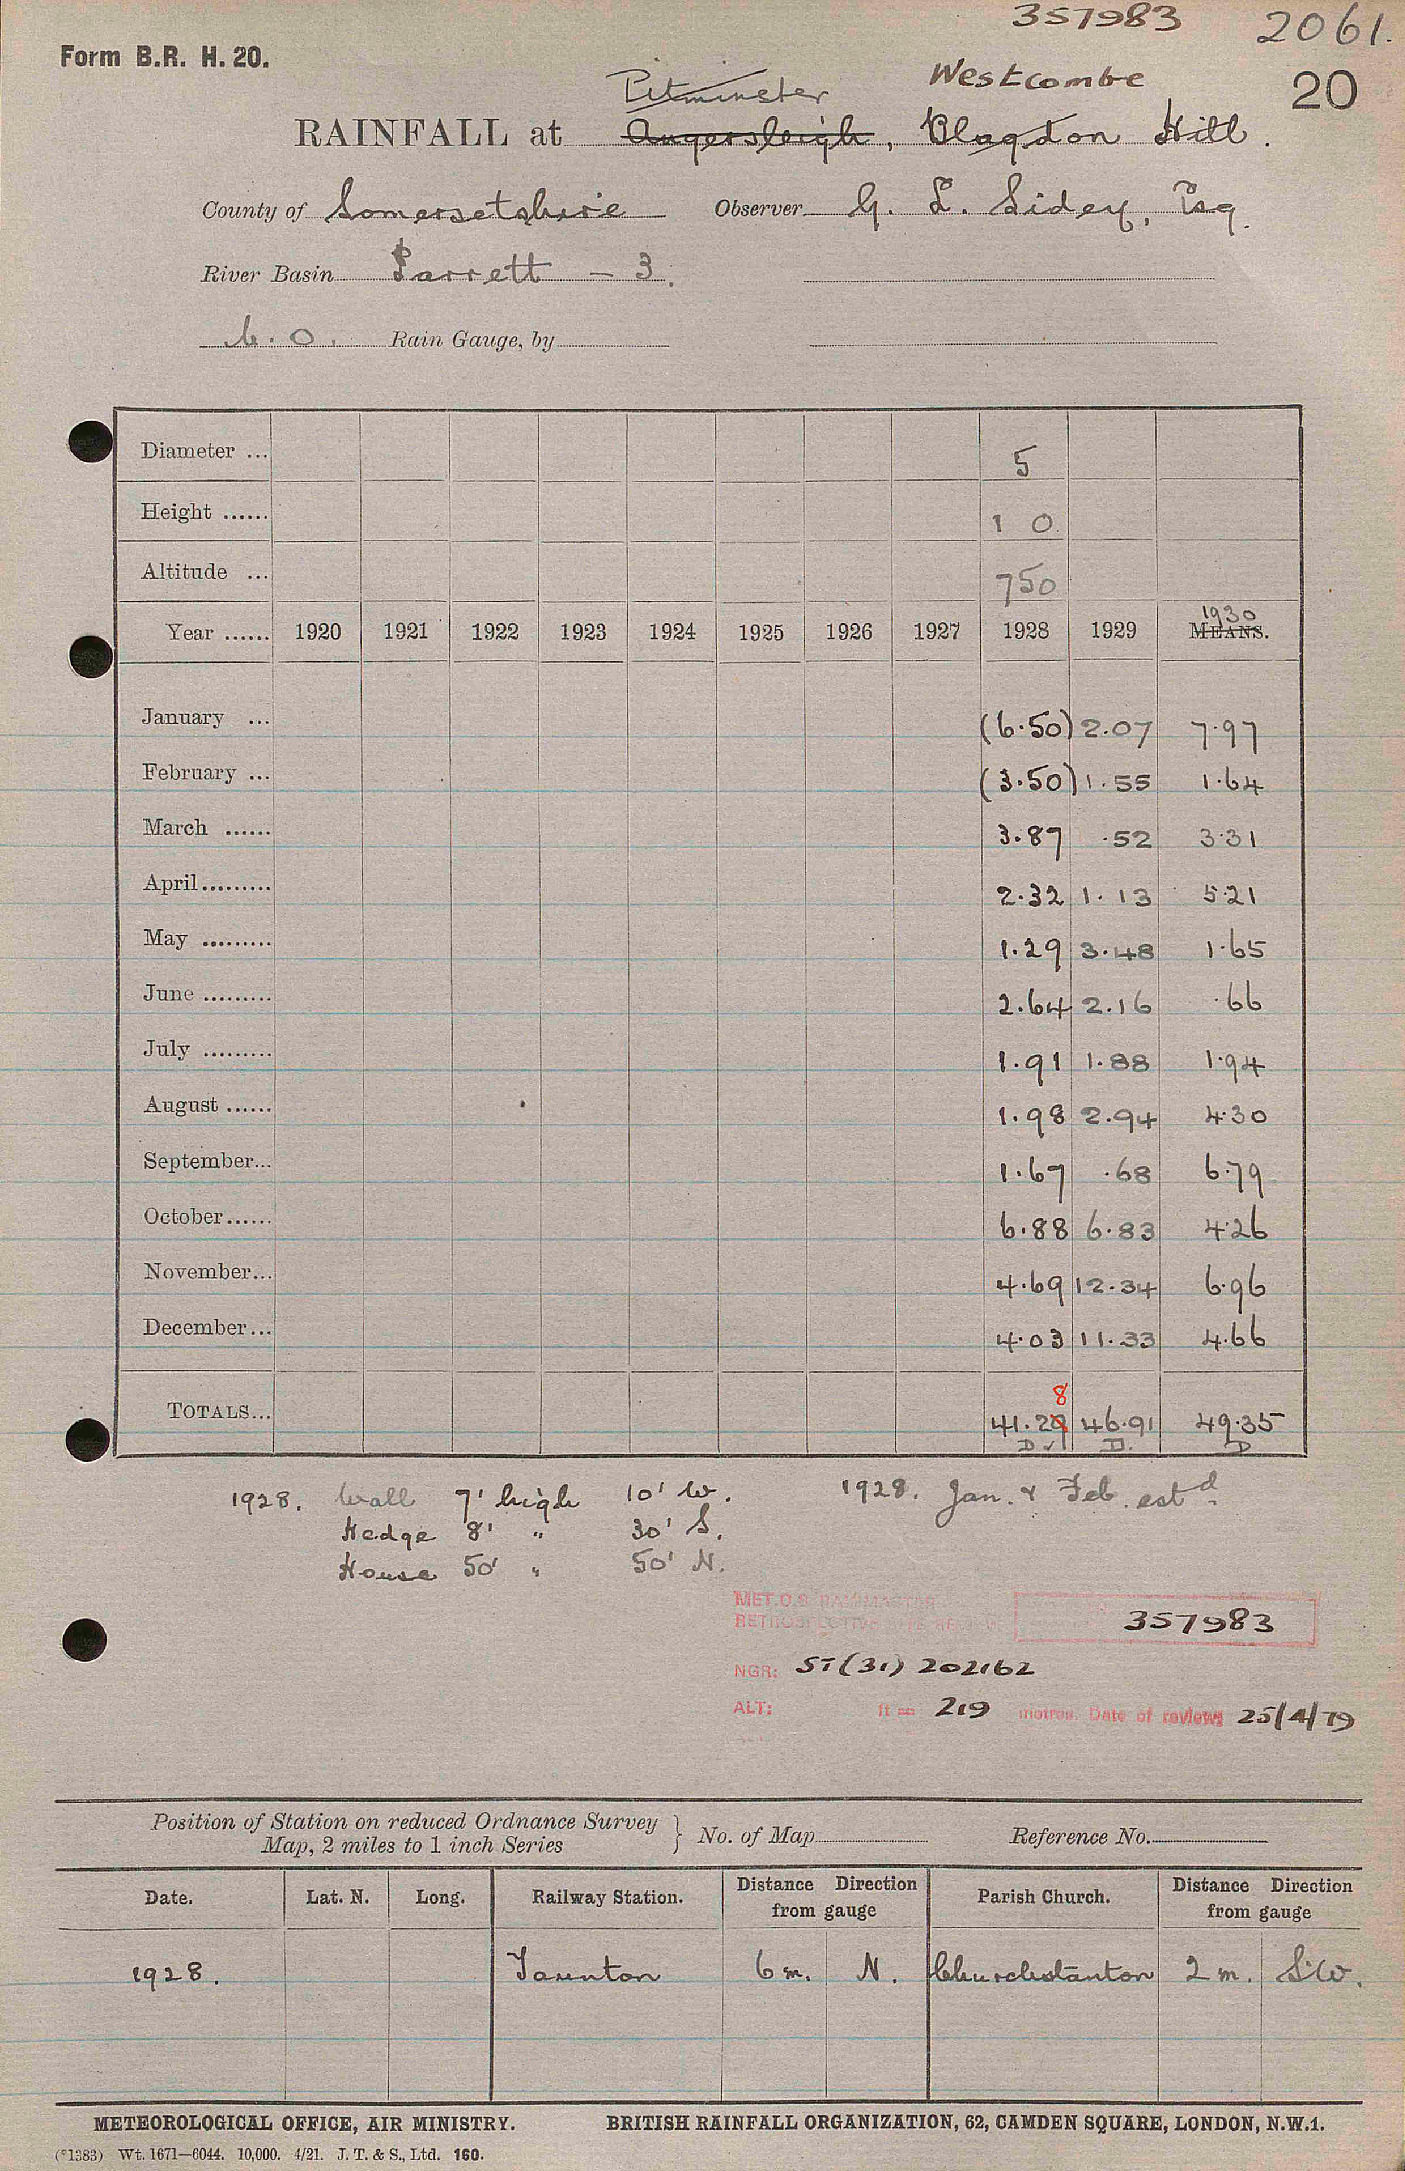 357983 2061.
Form B.R. H. 20.
20
Pitminster Westcombe
RAINFALL at Angersleigh, Blagdon Hill.
County of Somersetshire Observer G. L. Sidey, Esq.
River Basin Parrett — 3.
M.O. Rain Gauge, by
Diameter ... 5
Height ...... 1 0
Altitude ... 750
1930
Year ...... 1920 1921 1922 1923 1924 1925 1926 1927 1928 1929 MEANS.
January ... (6.50) 2.07 7.97
February ... (3.50) 1.55 1.64
March ...... 3.87 .52 3.31
April......... 2.32 1.13 5.21
May ......... 1.29 3.48 1.65
June ......... 2.64 2.16 .66
July ......... 1.91 1.88 1.94
August ...... 1.98 2.94 4.30
September... 1.67 .68 6.79
October...... 6.88 6.83 4.26
November... 4.69 12.34 6.96
December... 4.03 11.33 4.66
8
TOTALS... 41.29 46.91 49.35
D ✓ D. D
1928. Wall 7' high 10' W. 1928. Jan. & Feb. estd.
Hedge 8' " 30' S.
House 50' " 50' N.
MET.O.8 RAINMASTER
RETROSPECTIVE 357983
NGR: ST(31) 202162
ALT: ft = 219 metres. Date of review: 25/4/79
Position of Station on reduced Ordnance Survey
Map, 2 miles to 1 inch Series } No. of Map Reference No.
Date. Lat. N. Long. Railway Station. Distance Direction from gauge Parish Church. Distance Direction from gauge
1928. Taunton 6 m. N. Churchstanton 2 m. S.W.
METEOROLOGICAL OFFICE, AIR MINISTRY. BRITISH RAINFALL ORGANIZATION, 62, CAMDEN SQUARE, LONDON, N.W.1.
(*1383) Wt. 1671—6044. 10,000. 4/21. J. T. & S., Ltd. 160.